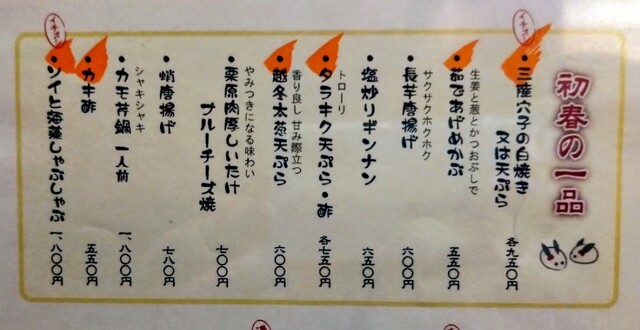 初春の一品
イチオシ
・三陸穴子の白焼き
又は天ぷら
各九五〇円
生姜と葱とかつおぶしで
・茹であげめかぶ
五五〇円
サクサクホクホク
・長芋唐揚げ
六〇〇円
・塩炒りギンナン
六五〇円
トローリ
・タラキク天ぷら・酢
各七五〇円
香り良し 甘み際立つ
・越冬太葱天ぷら
六〇〇円
やみつきになる味わい
・栗原肉厚しいたけ
ブルーチーズ焼
七〇〇円
・蛸唐揚げ
七八〇円
シャキシャキ
・カモ芹鍋 一人前
一、八〇〇円
・カキ酢
五五〇円
イチオシ
・ソイと海藻しゃぶしゃぶ
一、八〇〇円